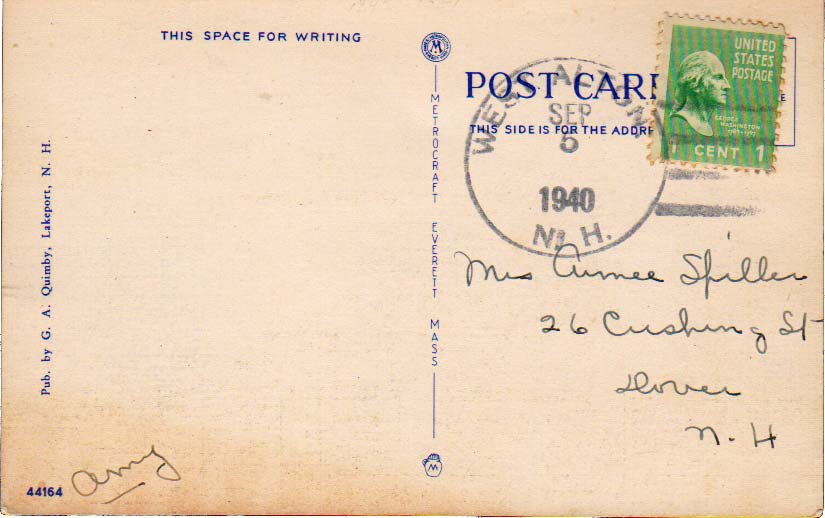 THIS SPACE FOR WRITING
M
POST CAR
THIS SIDE IS FOR THE ADDRE
E
UNITED
STATES
POSTAGE
GEORGE
WASHINGTON
1 CENT 1
WEST ALTON
SEP
5
1940
N. H.
METROCRAFT EVERETT MASS
M
Pub. by G. A. Quimby, Lakeport, N. H.
Mrs Aimee Spiller
26 Cushing St
Dover
N. H
44164
Amy